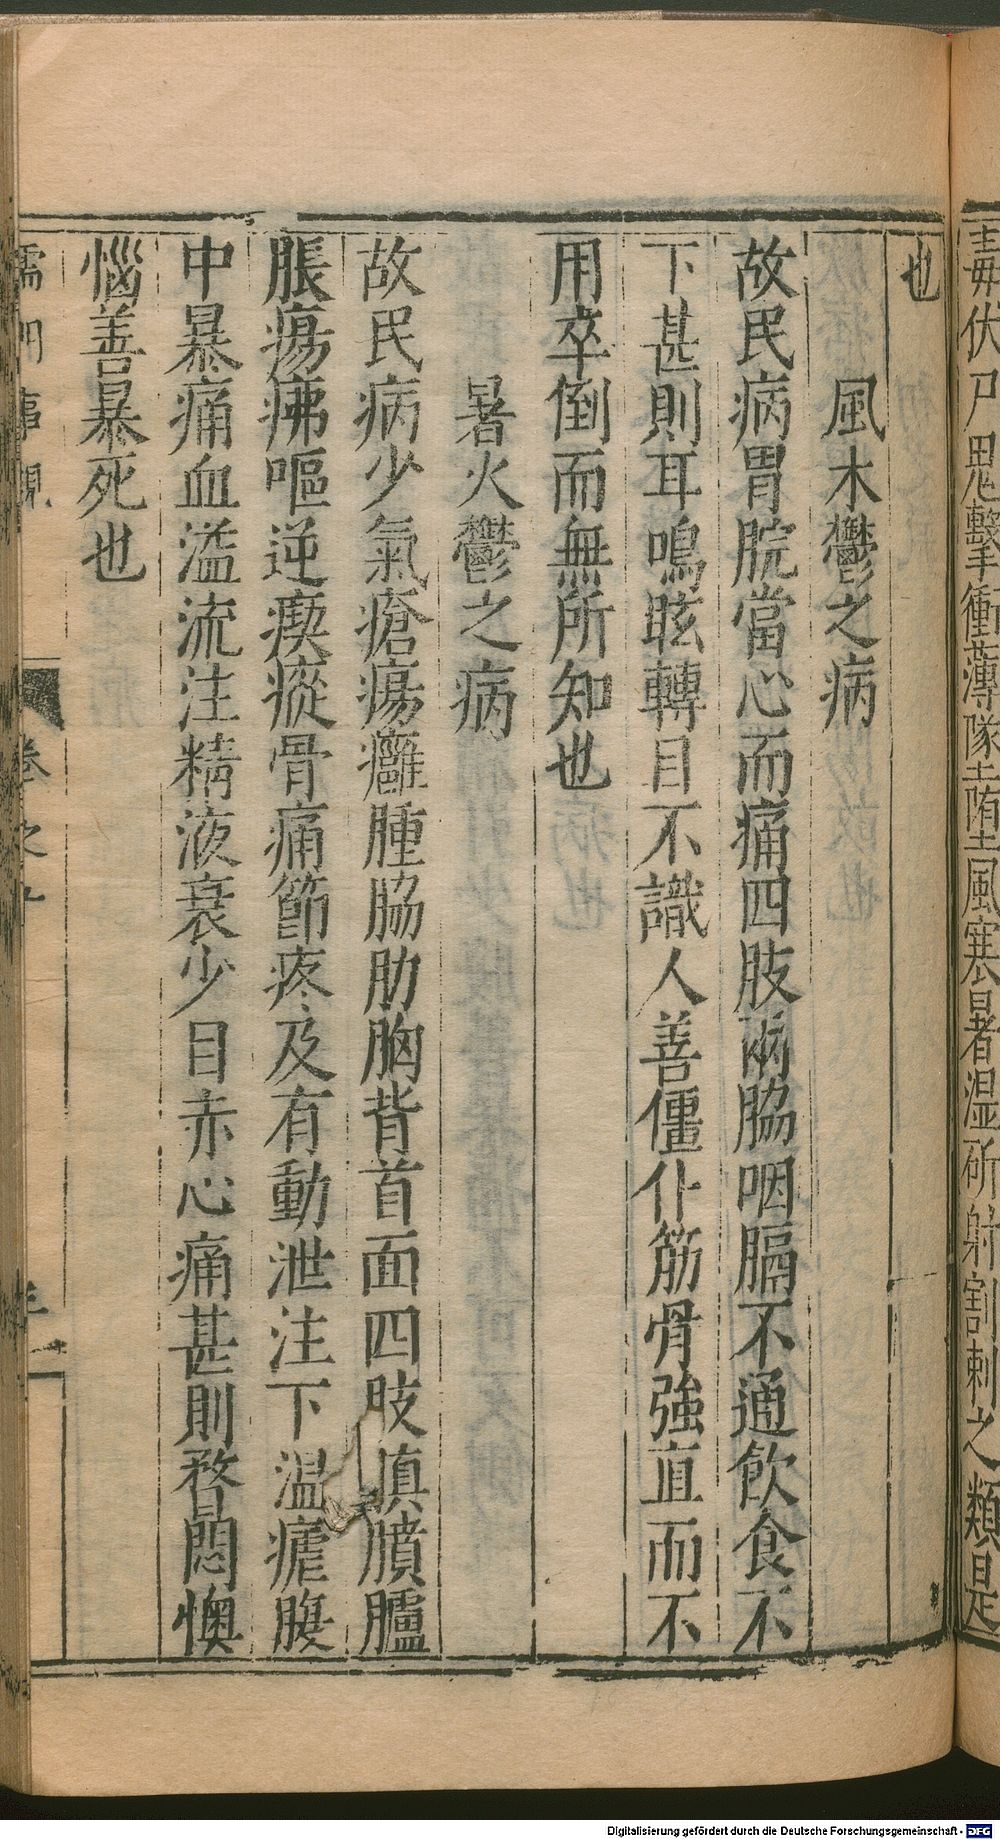 毒伏尸鬼擊衝薄墜墮風寒暑湿斫射割刺之類是
也
風木鬱之病
故民病胃脘當心而痛四肢兩脇咽膈不通飲食不
下甚則耳鳴眩轉目不識人善僵仆筋骨強直而不
用卒倒而無所知也
暑火鬱之病
故民病少氣瘡瘍癰腫脇肋胸背首面四肢䐜膹臚
脹瘍疿嘔逆瘈瘲骨痛節疼及有動泄注下温瘧腹
中暴痛血溢流注精液衰少目赤心痛甚則瞀悶懊
惱善暴死也
儒門事親
卷之
Digitalisierung gefördert durch die Deutsche Forschungsgemeinschaft - DFG